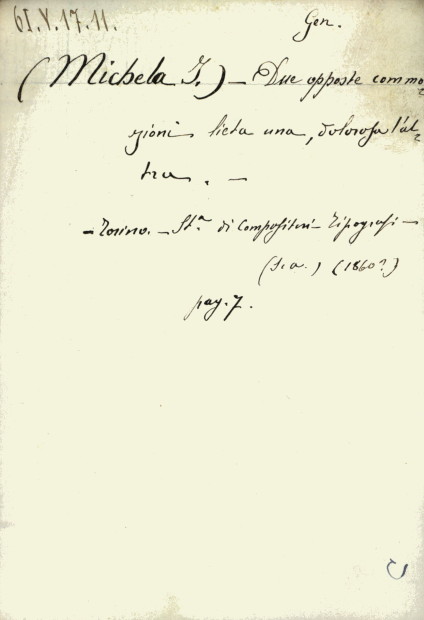 61.V.17.11.
Gen.
(Michela I.) — Due opposte commo=
zioni lieta una, dolorosa l'al=
tra. —
— Torino. — St.ª di Compositori-Tipografi —
(s.a.) (1860?)
pag. 7.